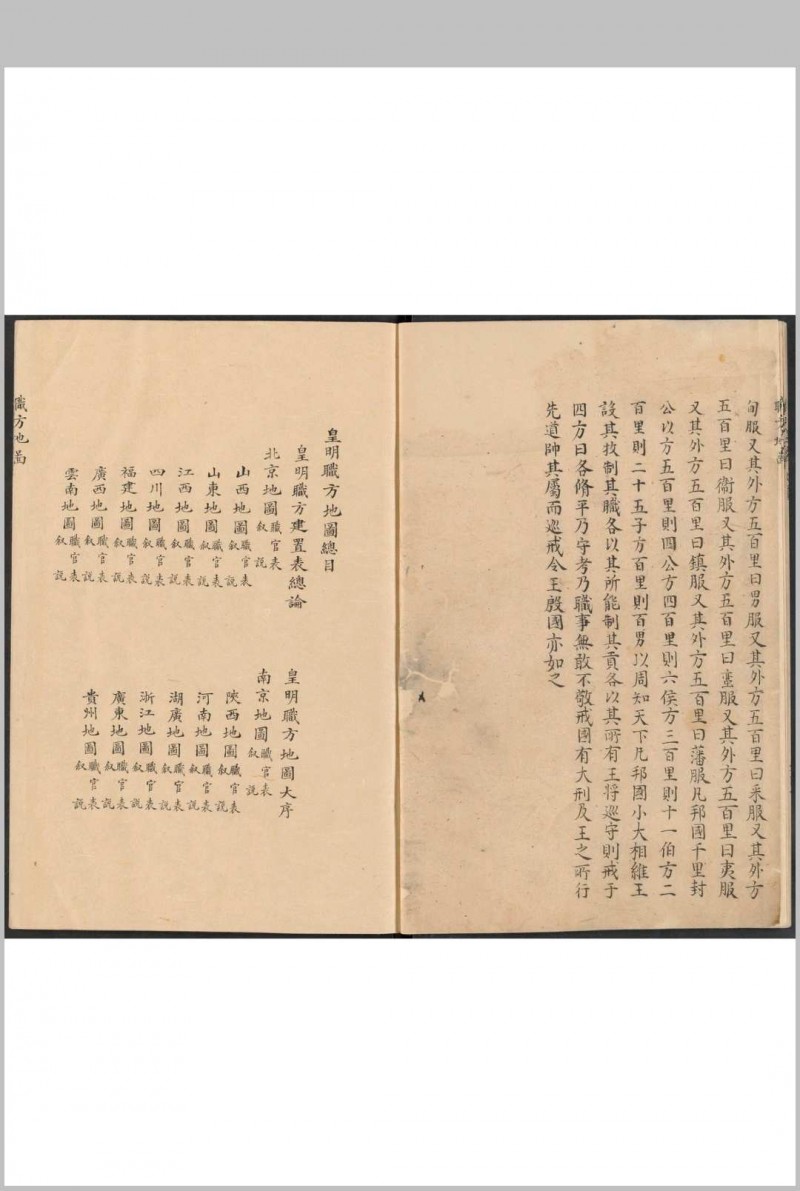 甸服又其外方五百里曰男服又其外方五百里曰采服又其外方
五百里曰衞服又其外方五百里曰蠻服又其外方五百里曰夷服
又其外方五百里曰鎮服又其外方五百里曰藩服凡邦國千里封
公以方五百里則四公方四百里則六侯方三百里則十一伯方二
百里則二十五子方百里則百男以周知天下凡邦國小大相維王
設其牧制其職各以其所能制其貢各以其所有王將巡守則戒于
四方曰各脩平乃守考乃職事無敢不敬戒國有大刑及王之所行
先道帥其屬而巡戒令王殷國亦如之
皇明職方地圖總目
皇明職方建置表總論
皇明職方地圖大序
北京地圖 職官表 叙說
南京地圖 職官表 叙說
山西地圖 職官表 叙說
陝西地圖 職官表 叙說
山東地圖 職官表 叙說
河南地圖 職官表 叙說
江西地圖 職官表 叙說
湖廣地圖 職官表 叙說
四川地圖 職官表 叙說
浙江地圖 職官表 叙說
福建地圖 職官表 叙說
廣東地圖 職官表 叙說
廣西地圖 職官表 叙說
貴州地圖 職官表 叙說
雲南地圖 職官表 叙說
職方地啚